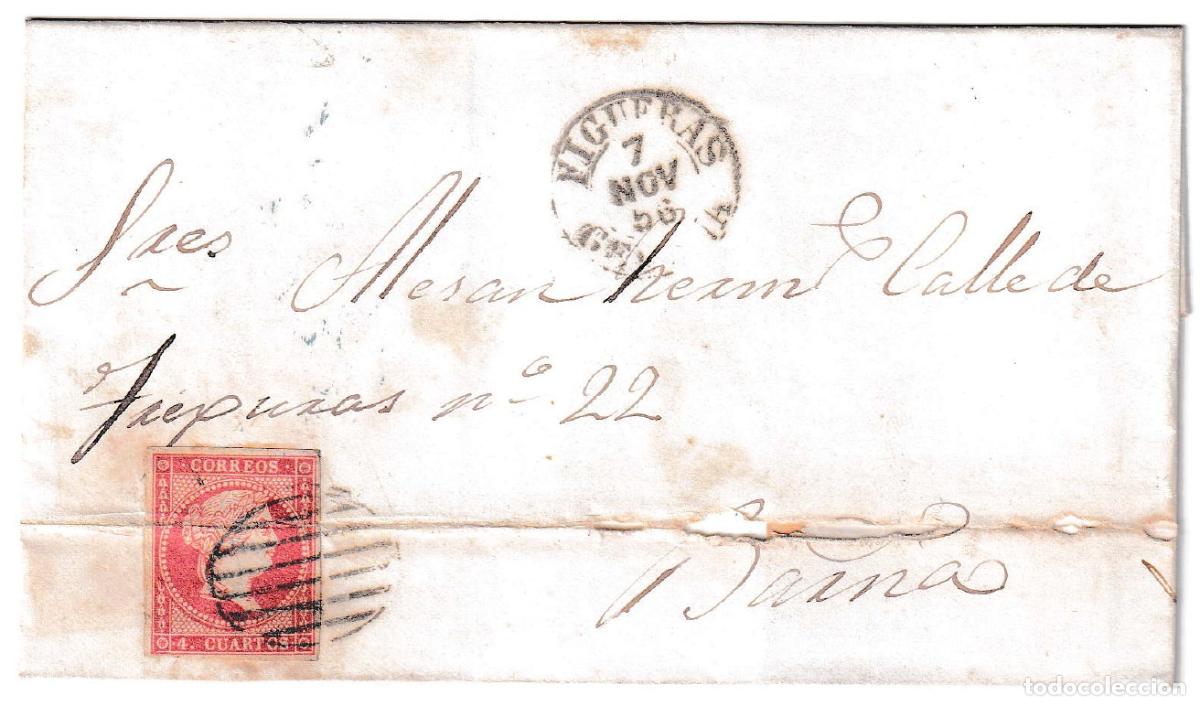 FIGUERAS
7
NOV
56
GE
Sres Mesan herm E Calle de
Trepuras nº 22
CORREOS
4. CUARTOS
Barna
todocoleccion